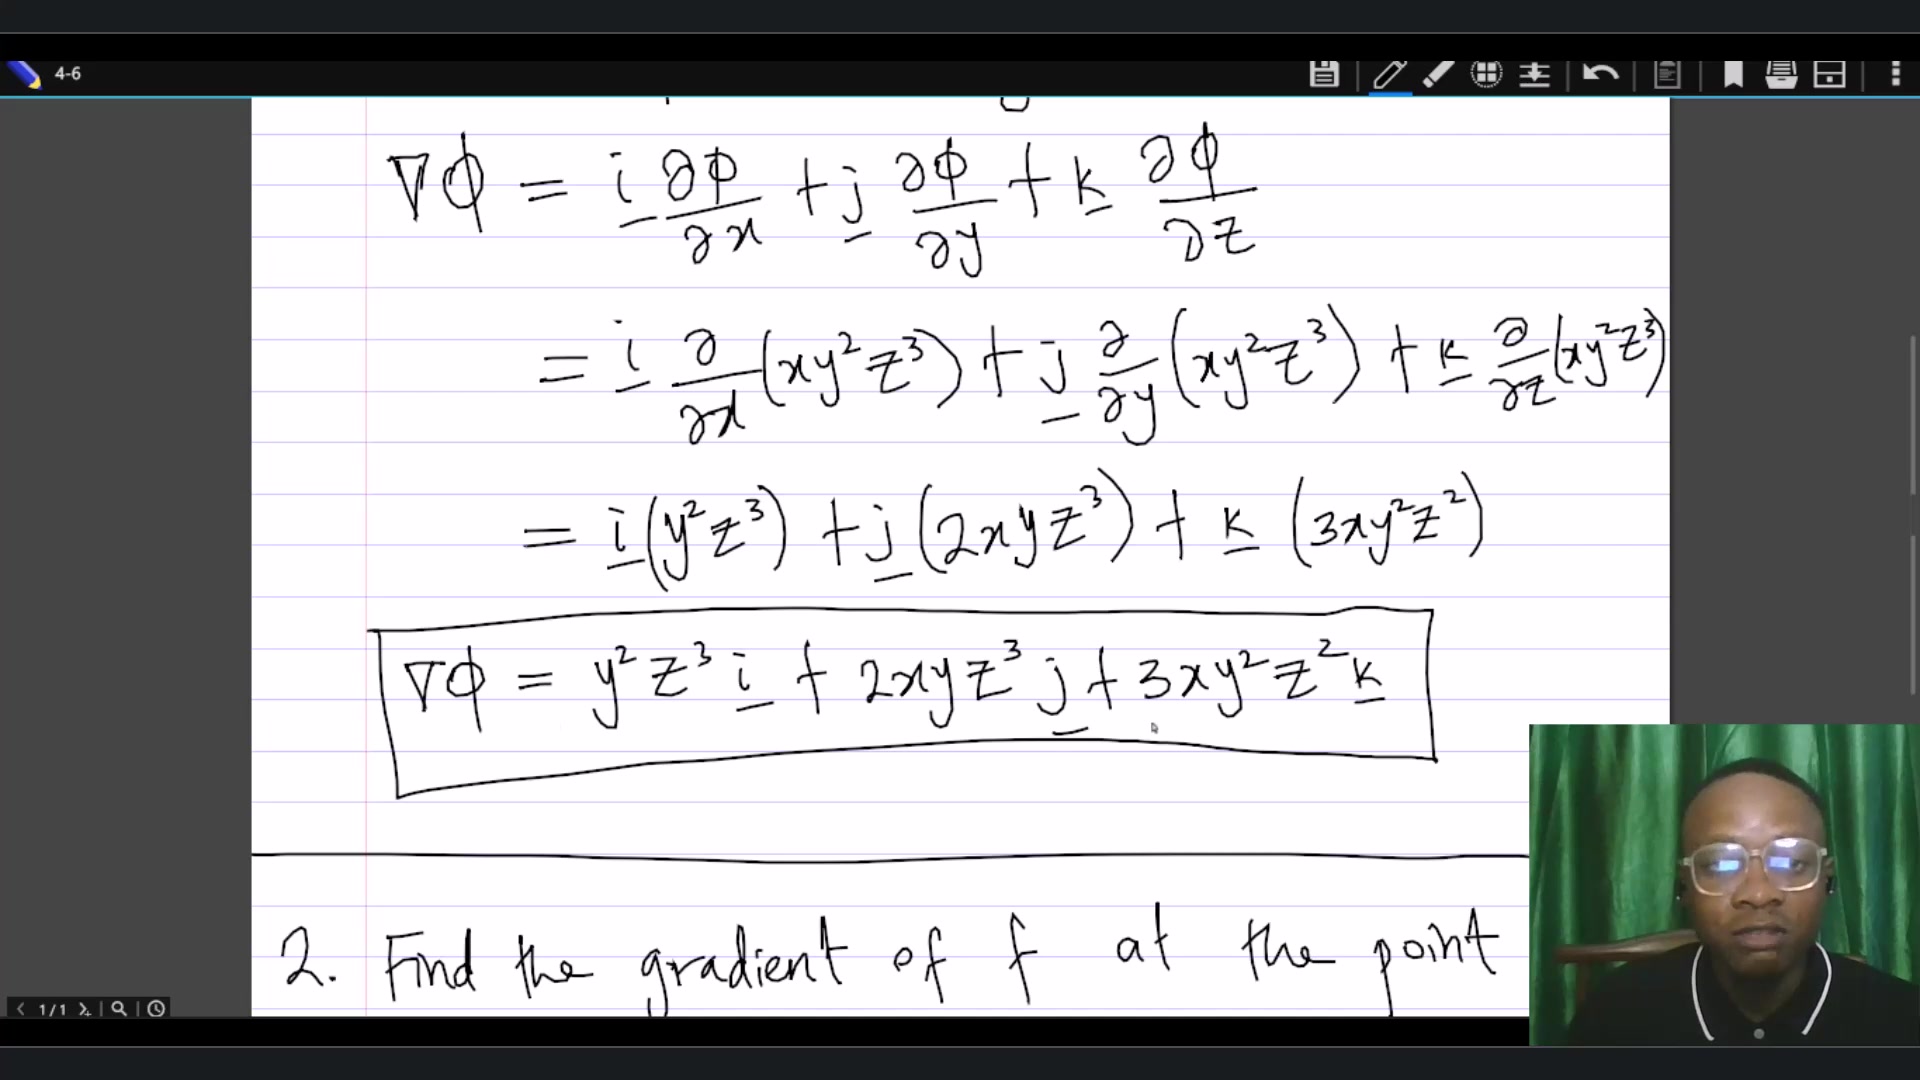 4-6
∇ϕ = i ∂ϕ/∂x + j ∂ϕ/∂y + k ∂ϕ/∂z
= i ∂/∂x (xy²z³) + j ∂/∂y (xy²z³) + k ∂/∂z (xy²z³)
= i(y²z³) + j(2xyz³) + k(3xy²z²)
∇ϕ = y²z³ i + 2xyz³ j + 3xy²z² k
2. Find the gradient of f at the point
1/1